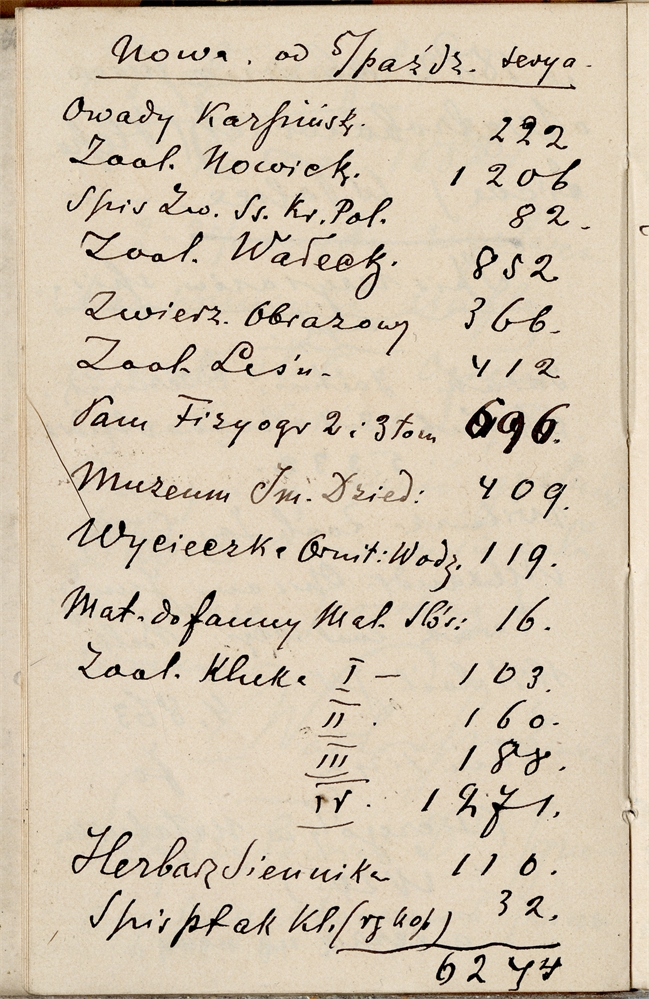 Nowa. od 5/paźdz. serya.
Owady Karpińsk. 222
Zool. Nowick. 1206
Spis Zw. Ss. Kr. Pol. 82.
Zool. Wałeck. 852
Zwierz. Obrazowy 366.
Zool. Leśn. 412
Pam Fizyogr 2 i 3 tom 696.
Muzeum Im. Dzied: 409.
Wycieczka Ornit: Wodz. 119.
Mat. do fauny Mał. Słór: 16.
Zool. Kluka I – 103.
II. 160.
III 188.
IV. 1271.
Herbarz Siennika 110.
Spis ptak Kl. (rgkop) 32.
6244